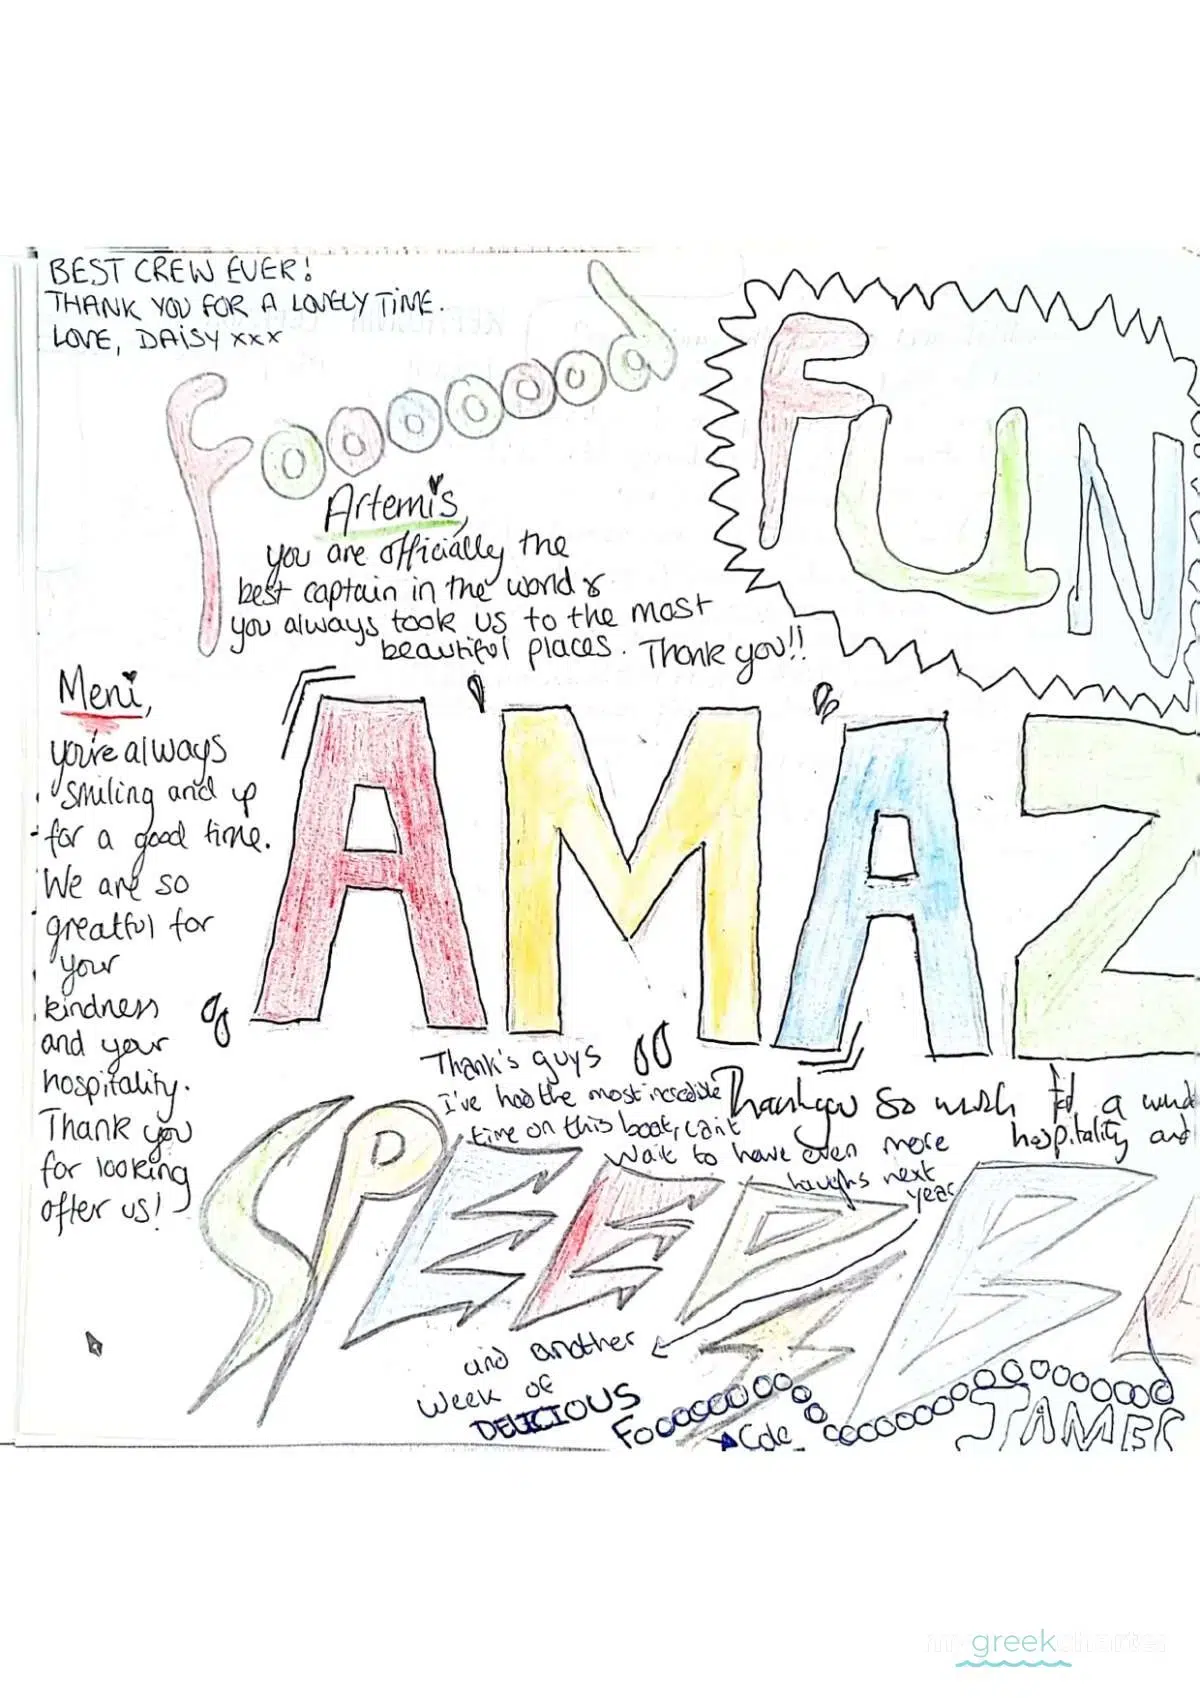 BEST CREW EVER!
THANK YOU FOR A LOVELY TIME.
LOVE, DAISY xxx
Fooooood
FUN
Artemis,
you are officially the
best captain in the world &
you always took us to the most
beautiful places. Thank you!!
Meni,
you're always
smiling and up
for a good time.
We are so
greatful for
your
kindness
and your
hospitality.
Thank you
for looking
after us!
AMAZ
Thank's guys
I've had the most incredible
time on this boat, can't
wait to have even more
laughs next
year
and another
week of
DELICIOUS
Cole
Thankyou so much for a
hospitality and
SPEEDB
JAMES
my greek charter